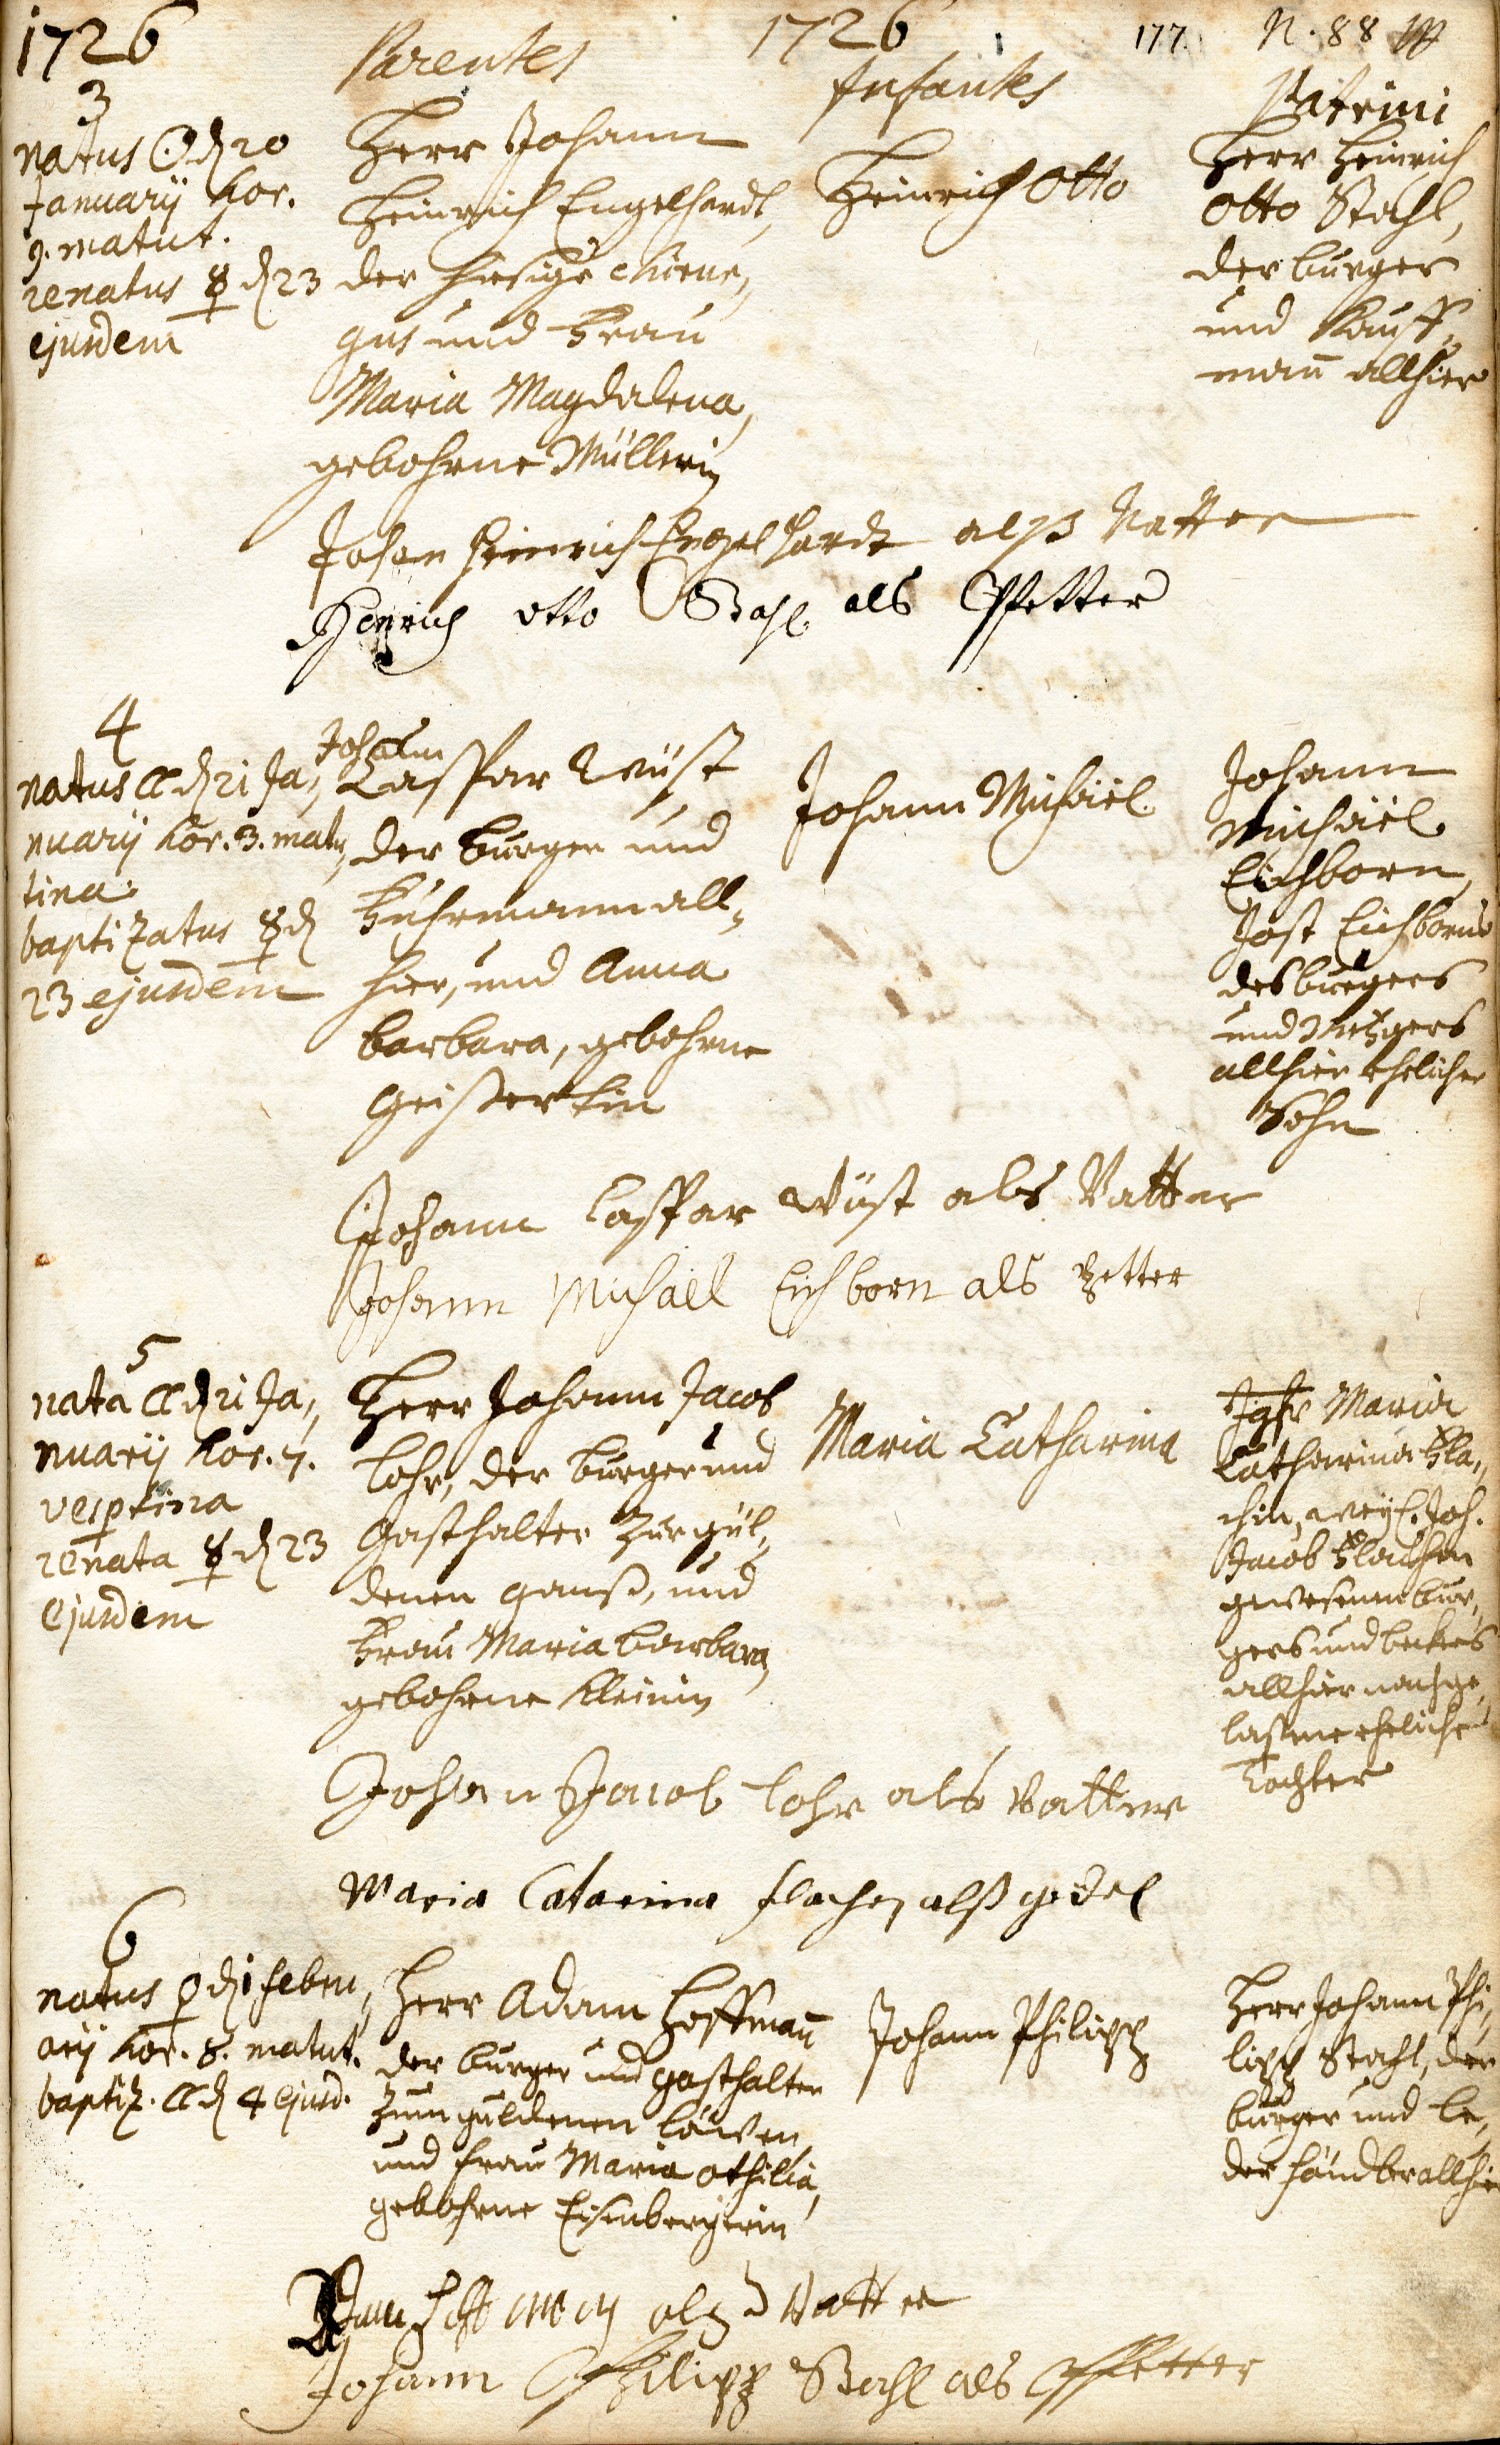 1726 1726 177. N. 88
Parentes Infantes Patrini
3
natus ☉ d 20
Januarij hor.
9. matut.
renatus ☿ d 23
ejusdem
Herr Johann
Heinrich Engelhardt,
der hiesige Chirur„
gus und Frau
Maria Magdalena,
gebohrne Müllerin
Heinrich Otto
Herr Heinrich
Otto Stahl,
der burger
und Kauff„
mañ allhier
Johan Heinrich Engelhardt alß Vatter
Henrich Otto Stahl als Pfetter
4
natus ☾ d 21 Ja„
nuarij hor. 3. matu„
tina
baptizatus ☿ d
23 ejusdem
Johann
Caspar Wüst
der burger und
Fuhrmann all„
hier, und Anna
barbara, gebohrne
Johann Michäel
Johann
Michäel
Eichborn,
Jost Eichborns
des burgers
und Metzgers
allhier ehelicher
Sohn
Johann Caspar Wüst als Vatter
Johann Michäel Eichborn als Petter
5
nata ☾ d 21 Ja„
nuarij hor. 7.
vesptina
renata ☿ d 23
ejusdem
Herr Johann Jacob
Lohr, der burger und
Gasthalter zur gül„
denen ganß, und
Frau Maria barbara,
gebohrne Kleinin
Maria Catharina
Jgfr Maria
Catharina Fla„
chin, weyl. Joh.
Jacob Flachen
gewesenen bur„
gers und beckers
allhier nachge„
lassene eheliche
Tochter
Johan Jacob Lohr als Vatter
Maria Catarina Flachen alß gedel
6
natus ♀ d 1 Febru„
arij hor. 8. matut.
baptiz. ☾ d 4 ejusd.
Herr Adam Hoffmañ
der burger und gasthalter
zum guldenen Löwen,
und Frau Maria Othilia,
gebohrne Eisenbergerin
Johann Philipp
Herr Johann Phi„
lipp Stahl, der
burger und Le„
der händler allhier
Adam Hoffman alß Vatter
Johann Philipp Stahl als Pfetter